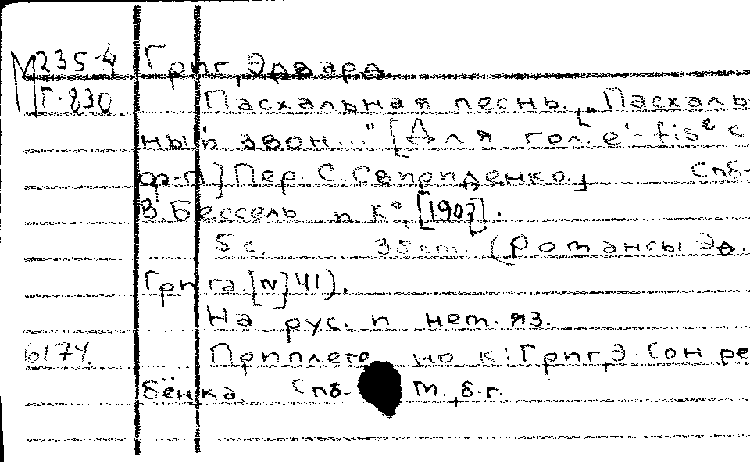 М235-4 Григ, Эдвард.
Г-830 Пасхальная песнь. „Пасхаль-
ный звон..." [Для гол. e¹-fis² с
ф-п.] Пер. С. Свириденко. Спб.-
В. Бессель и К°, [1907].
5 с. 35 cm. (Романсы Эд.
Грига [N] 41).
На рус. и нем. яз.
6174. Приплете но к: Григ, Э. Сон ре
бёнка. Спб- М., б.г.